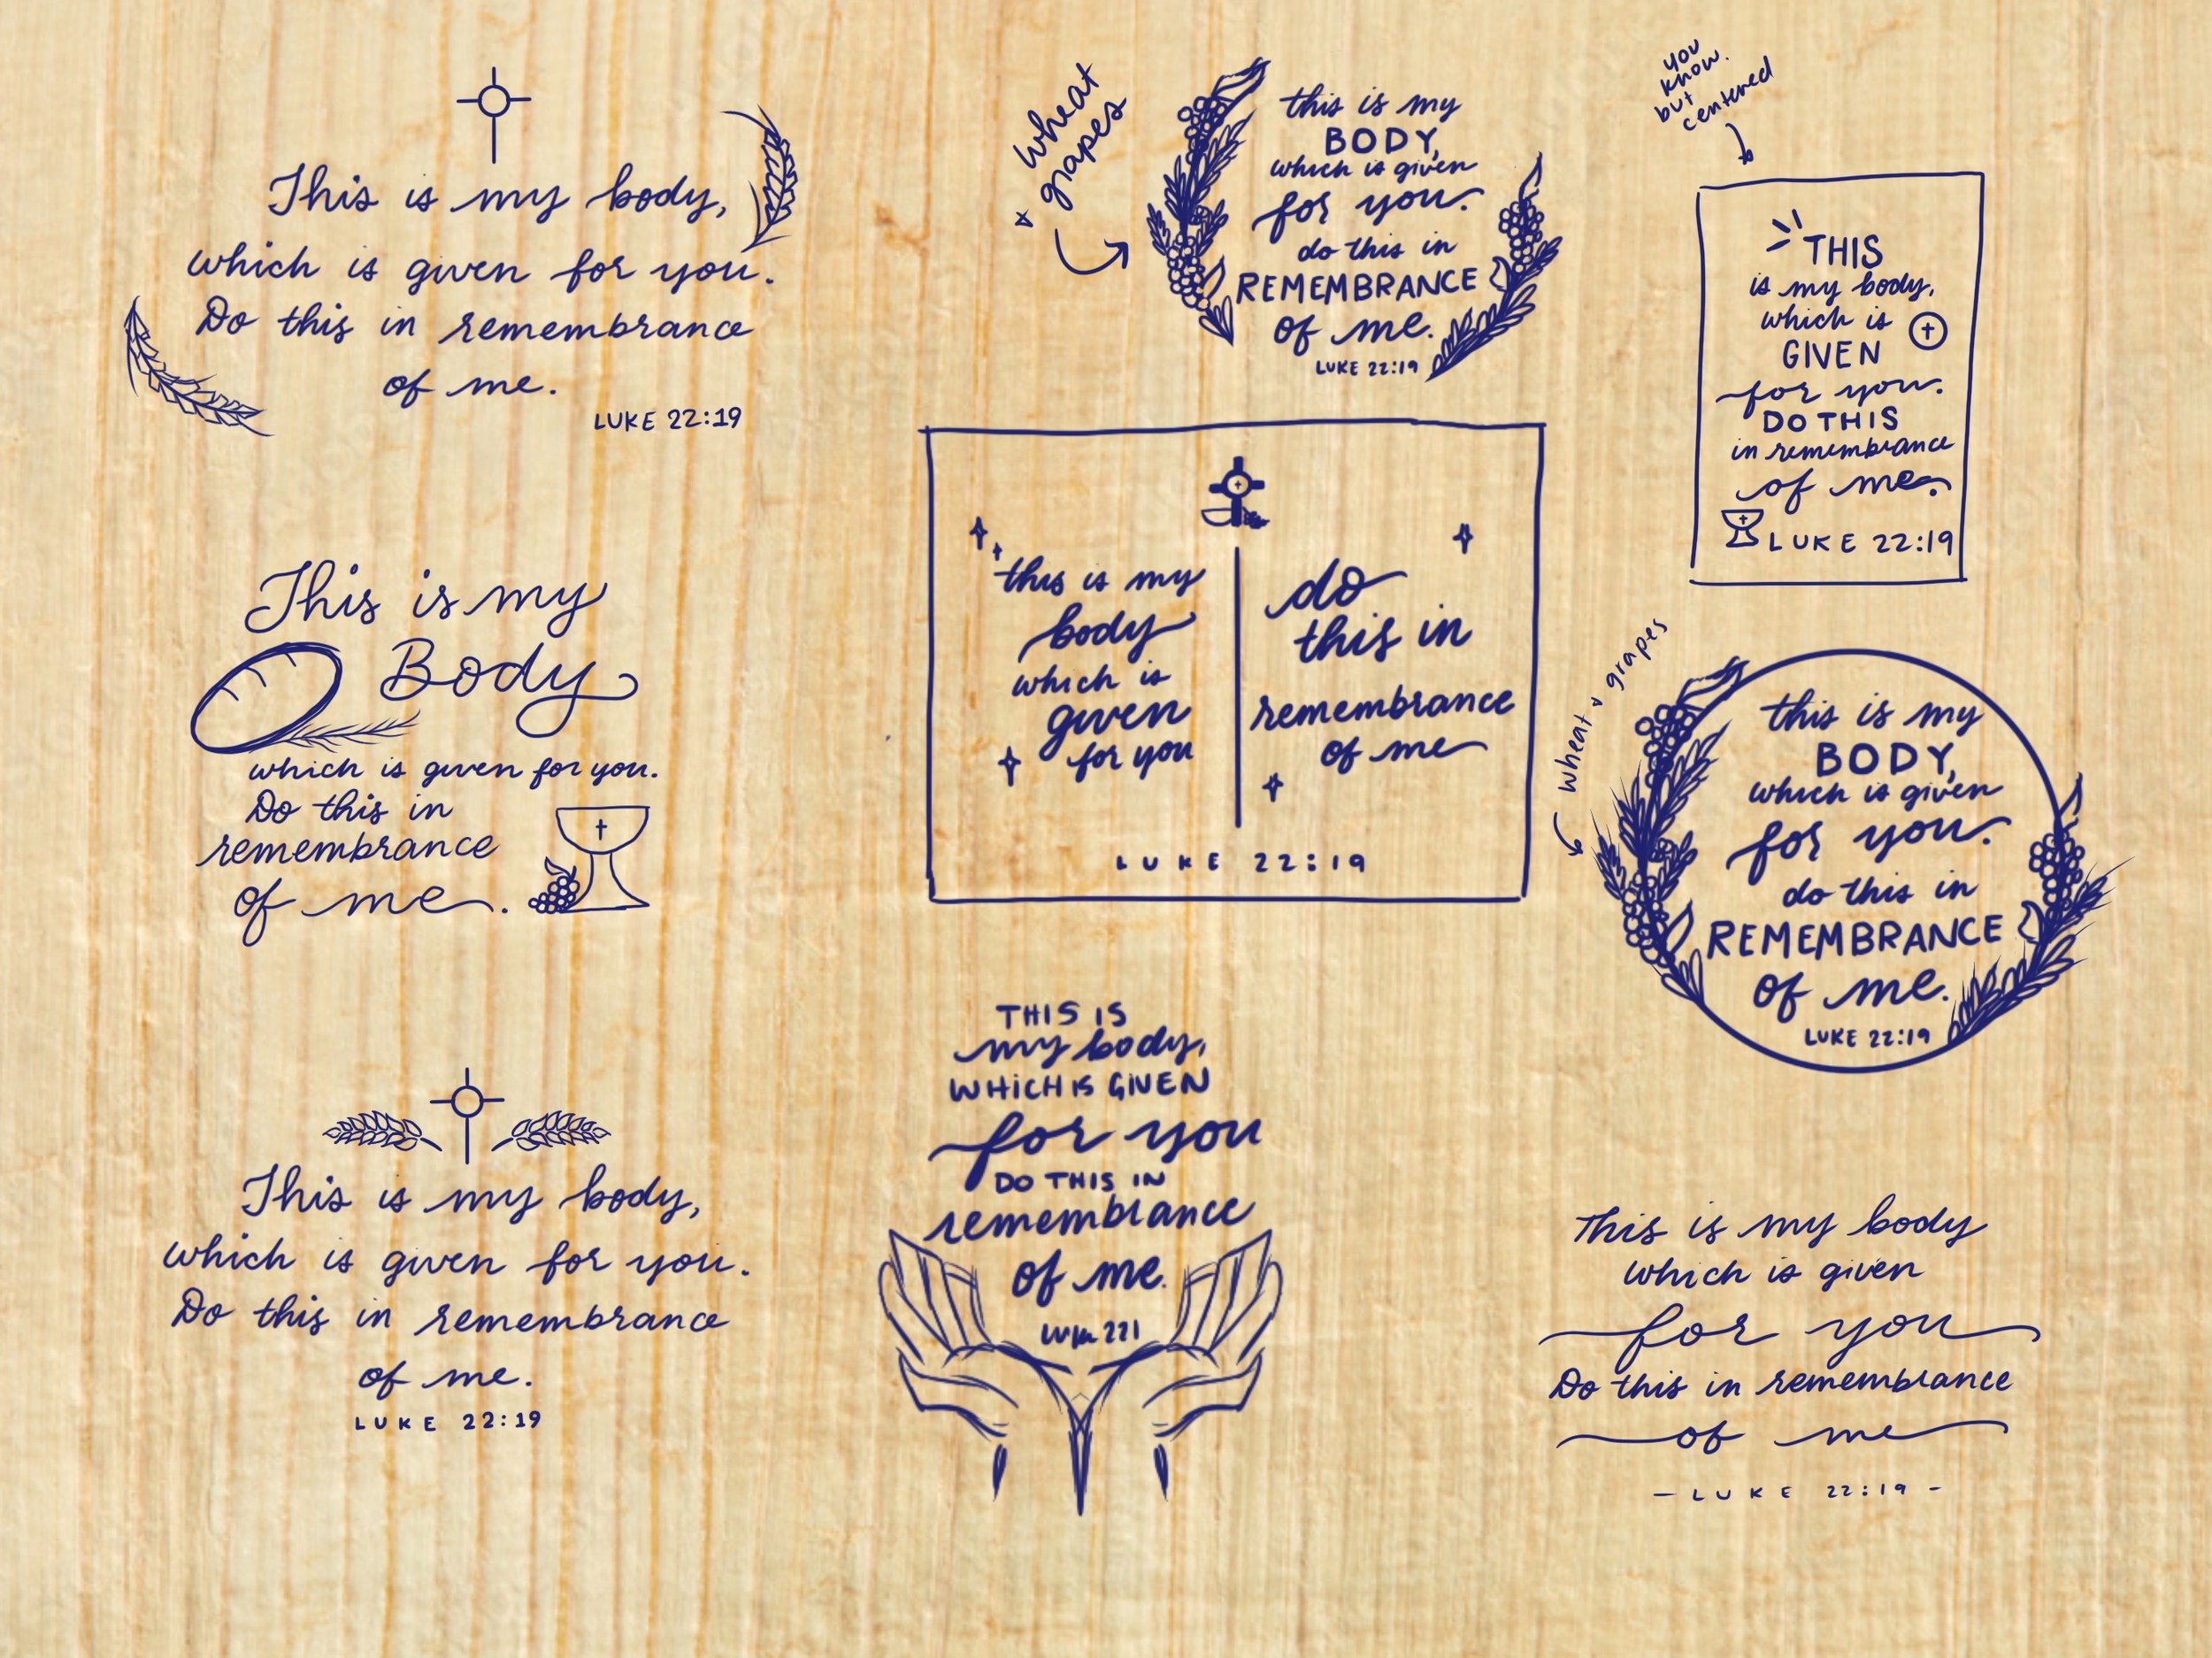 This is my body,
which is given for you.
Do this in remembrance
of me.
LUKE 22:19
This is my
Body
which is given for you.
Do this in
remembrance
of me.
This is my body,
which is given for you.
Do this in remembrance
of me.
LUKE 22:19
wheat
& grapes
this is my
BODY,
which is given
for you.
do this in
REMEMBRANCE
of me.
LUKE 22:19
this is my
body
which is
given
for you
do
this in
remembrance
of me
LUKE 22:19
THIS IS
my body,
WHICH IS GIVEN
for you
DO THIS IN
remembrance
of me.
Luke 221
you
know.
but
centered
THIS
is my body,
which is
GIVEN
for you.
DO THIS
in remembrance
of me.
LUKE 22:19
wheat & grapes
this is my
BODY,
which is given
for you.
do this in
REMEMBRANCE
of me.
LUKE 22:19
This is my body
which is given
for you
Do this in remembrance
of me
- LUKE 22:19 -